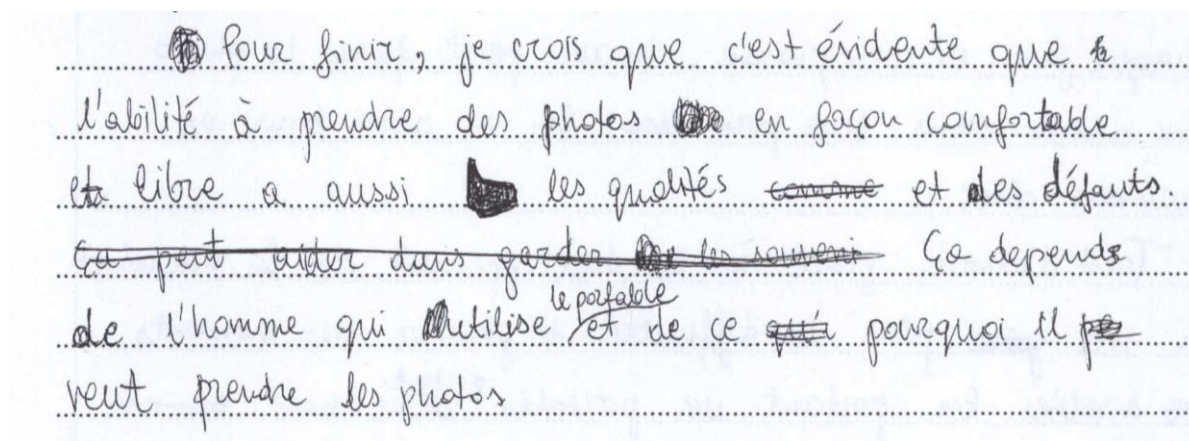 Pour finir, je crois que c'est ésidente que
l'abilité à prendre des photos en façon comfortable
et libre a aussi les qualités comme et des défauts
ça peut aider dans garder les souveni Ça depends
de l'homme qui utilise le portable et de ça qui pourquoi il
veut prendre les photos